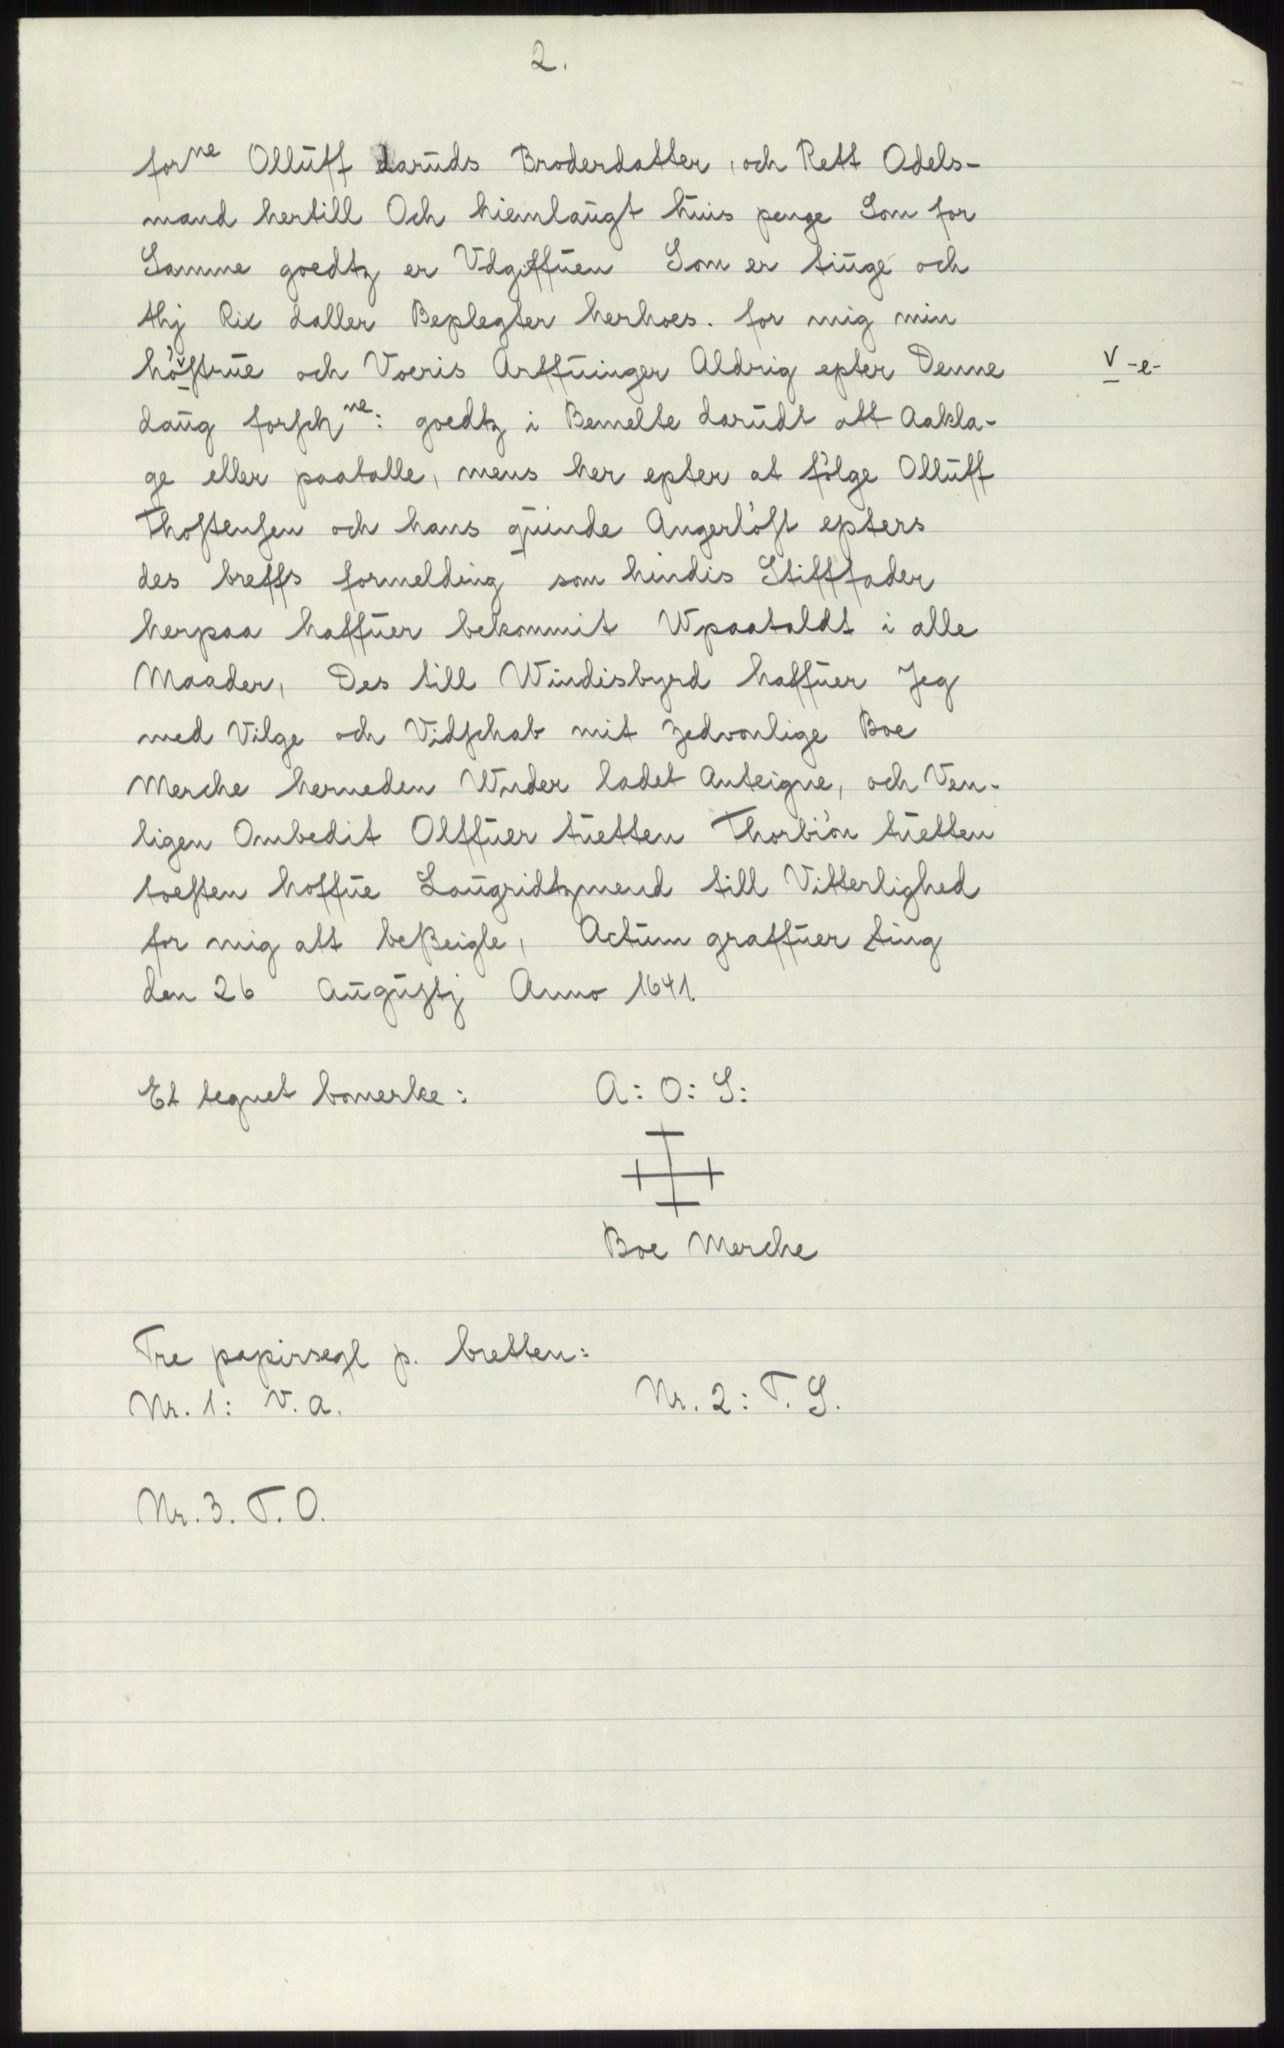 2.
forne Ollŭff darŭds Broderdatter, och Rett Odels-
mand hertill Och hiemlaŭgt hŭis penge Som for
Samme goedtz er Vdgiffŭen Som er tiŭge och
thj Rix daller Beplegter herhoes. for mig min
höfstrŭe och Voeris Arffŭinger Aldrig epter Denne V -e-
daŭg forschne: goedtz i Bemelte darŭdt att Aakla-
ge eller paatalle, mens her epter at følge Ollŭff
Thostensen och hans qŭinde Angerlöst epters
des breffs formelding som hindis Stifffader
herpaa haffŭer bekommit Wpaataldt i alle
Maader, Des till Windisbyrd haffŭer Jeg
med Vilge och Vidschab mit zedvonlige Boe
Merche herneden Wnder ladet Anteigne, och Ven-
ligen Ombedit Olffŭer tŭetten Thorbiön tŭetten
toesten hoffŭe Laŭgridtzmend till Vitterlighed
for mig att beßeigle, Actŭm graffŭer ting
den 26 Aŭgŭstj Anno 1641.
Et tegnet bomerke: A: O: S:
Boe Merche
Tre papirsegl p. bretten:
Nr. 1: V. A. Nr. 2: T. S.
Nr. 3. T. O.